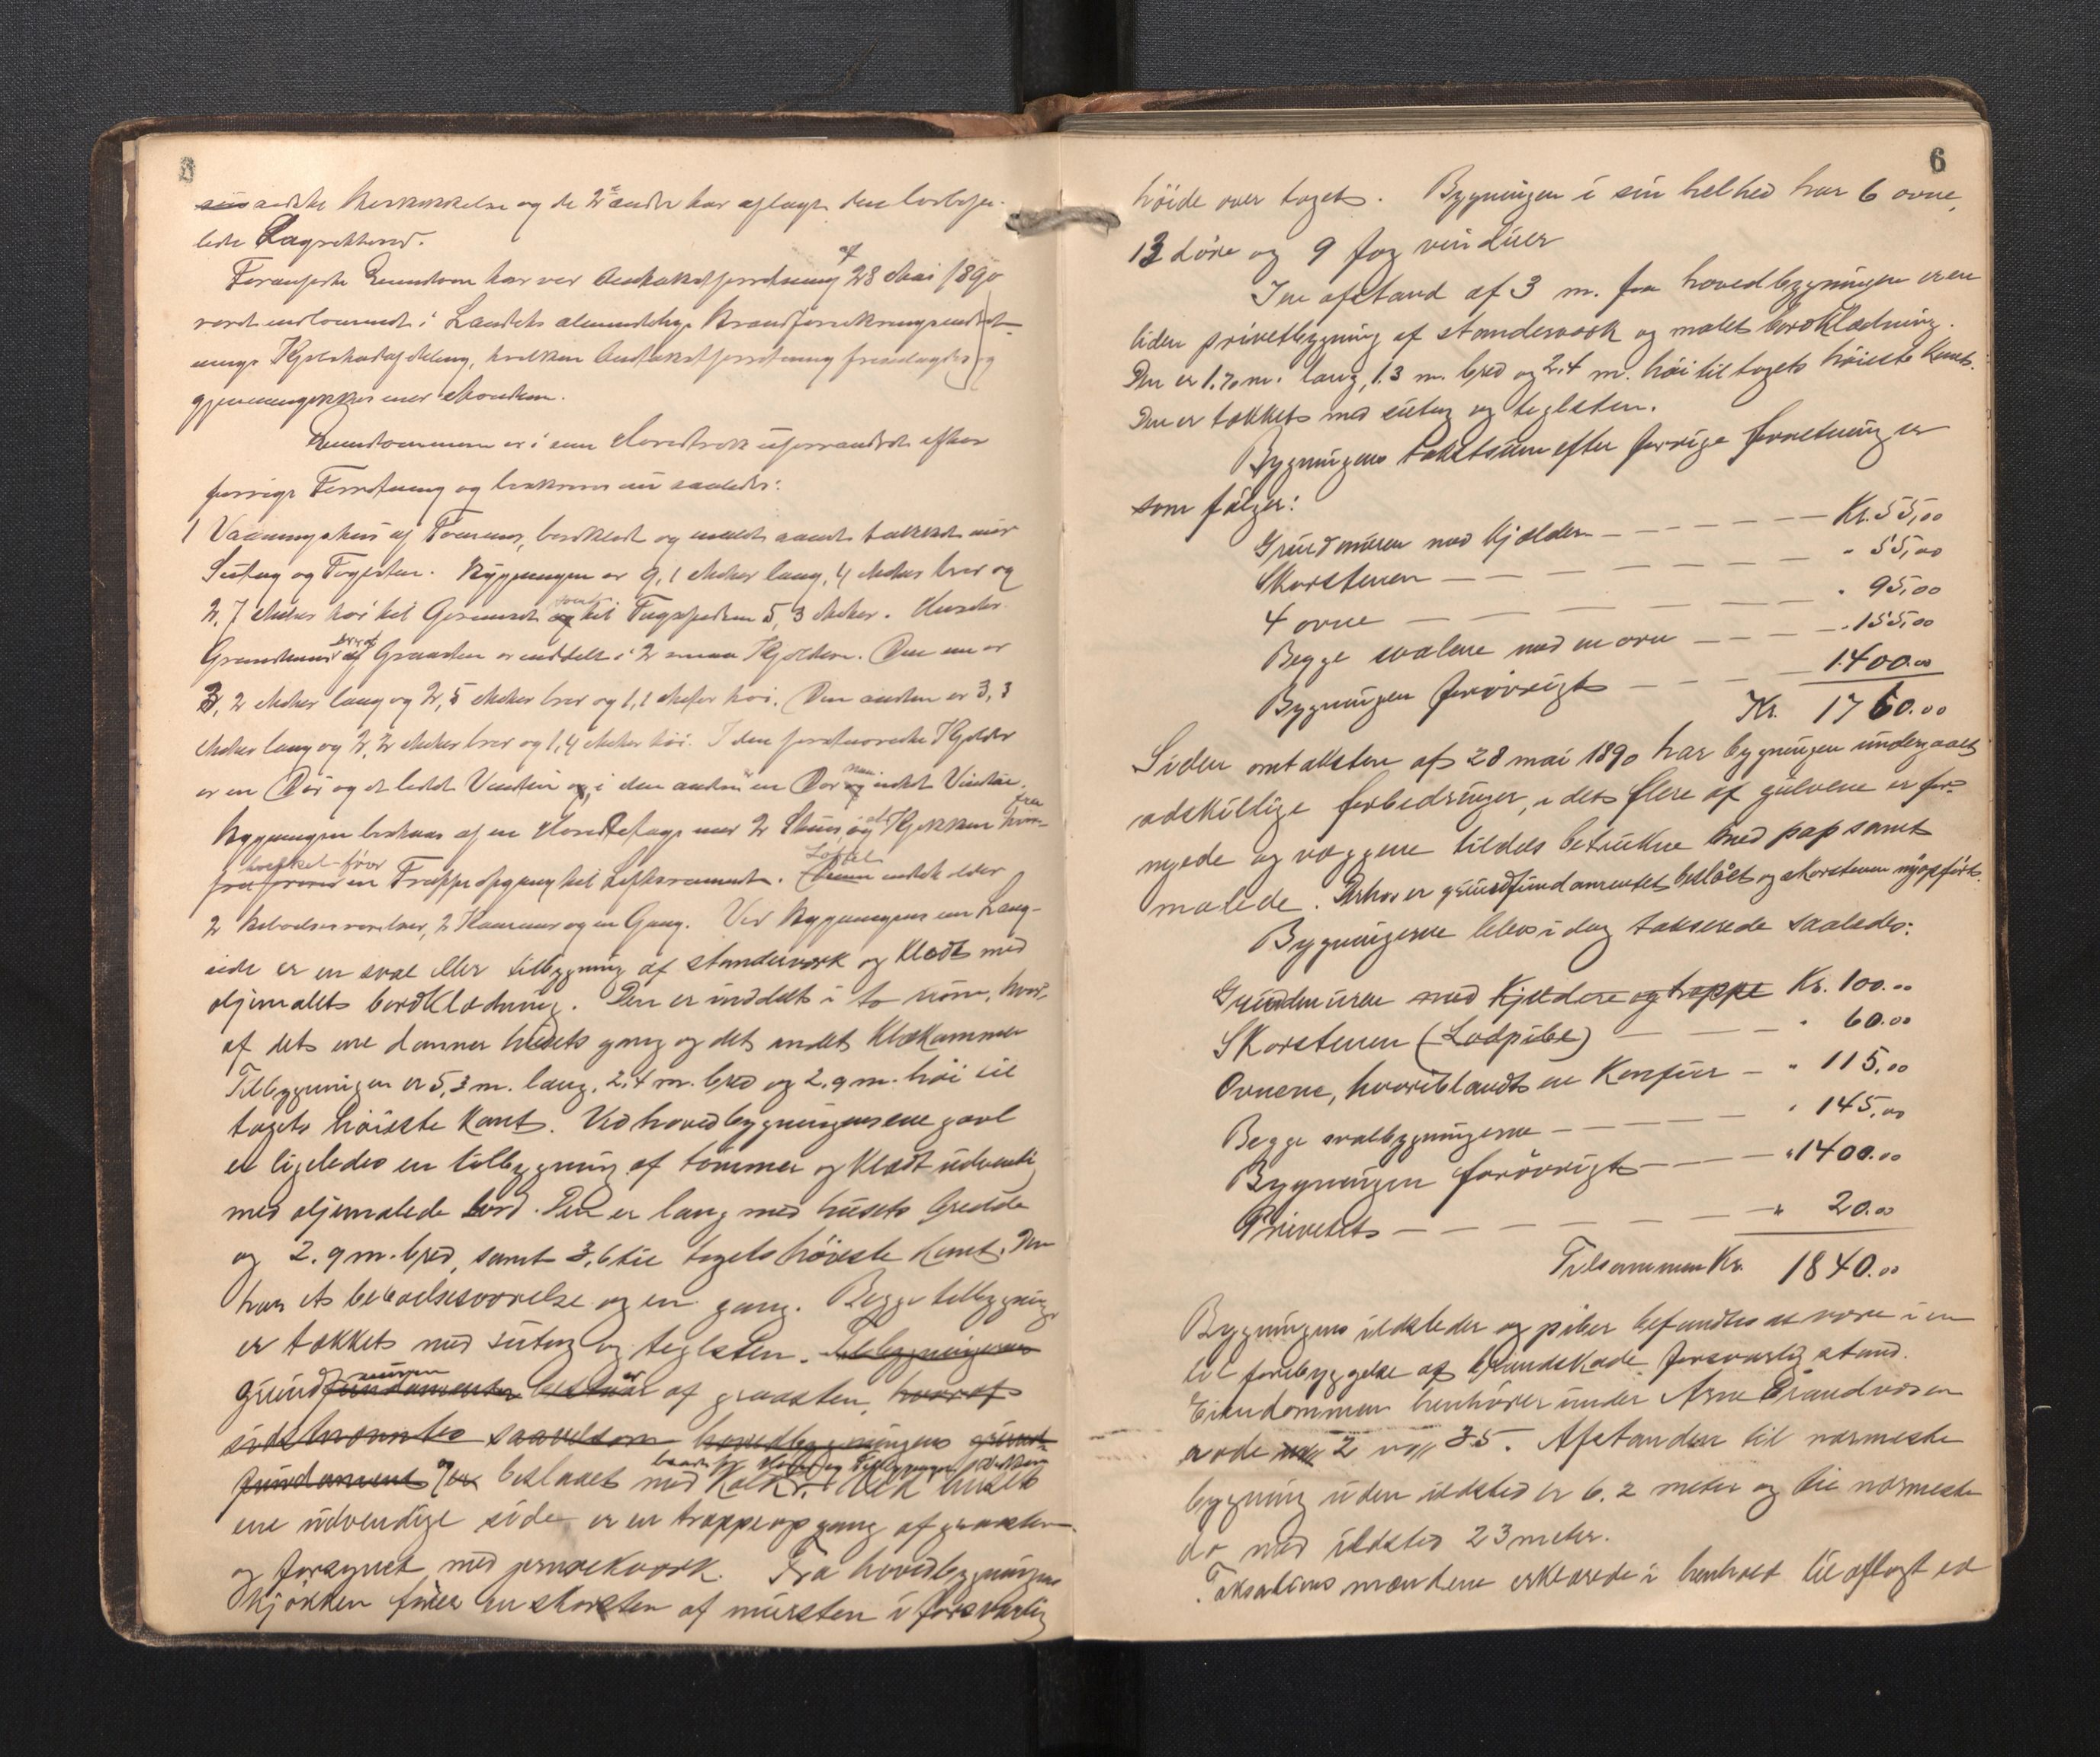 aedske Beskikkelse og de 2de andre har aflagt den lovbefa-
lede Lagrettesed.
Foranførte Eiendom har ved Omtakstforretning af 28 Mai 1890
været indlemmet i Landets almindelige Brandforsikringsindret-
nings Kjøbstadafdeling, hvilken Omtakstforretning fremlagdes og
gjennemgikkes ved Mændene.
Eiendommen er i sine Hovedtræk uforandret efter
forrige Forretning og beskrives nu saaledes:
1 Vaaningshus af Tømmer, bordklædt og malet samt tækket med
Sutag og Tagsten. Bygningen er 9,1 Meter lang, 4 Meter bred og
2,7 Meter høi til Gesimsen og til Tagspidsen 5,3 Meter. Husets
Grundmur af Graasten er inddelt i 2 smaa Kjeldere. Den ene er
3,2 Meter lang og 2,5 Meter bred og 1,1 Meter høi. Den anden er 3,3
Meter lang og 2,2 Meter bred og 1,4 Meter høi. I den førstnævnte Kjelder
er en Dør og et lidet Vindu og i den anden en Dør men intet Vindue.
Bygningen bestaar af en Hovedetage med 2 Stuer og et Kjøkken fra hvor-
hvilket fører en Trappeopgang til Loftsrummet. Loftet indeholder
2 Beboelsesværelser, 2 Kammer og en Gang. Ved Bygningens ene Lang-
side er en sval eller tilbygning af stenderværk og klædt med
oljemalet bordklædning. Den er inddelt i to rum, hvor-
af det ene danner husets gang og det andet Klækammer
Tilbygningen er 5,3 m. lang, 2,4 m. bred og 2.9 m. høi til
tagets høieste kant. Ved hovedbygningens ene gavl
er ligeledes en tilbygning af tømmer og klædt udvendig
med oljemalede bord. Den er lang med husets bredde
og 2.9 m. bred, samt 3,6 til tagets høieste kant. Den
har et beboelsesværelse og en gang. Begge tilbygninger
er tækket med sutag og teglsten. Tilbygningernes
grundfundamenter muren bestaar er af graasten, hvoraf
sidstnævntes saavelsom hovedbygningens grund-
fundament og er beslaaet med Kalk. Ved husets
ene udvendige side er en trappeopgang af graasten
og forsynet med jernrekværk. Fra hovedbygningens
Kjøkken fører en skorsten af mursten i forsvarlig
6
høide over taget. Bygningen i sin helhed har 6 ovne,
13 døre og 9 fag vinduer
I en afstand af 3 m. fra hovedbygningen er en
liden privetbygning af stenderværk og malet bordklædning.
Den er 1.70 m. lang, 1.3 m. bred og 2.4 m. høi til tagets høieste kant.
Den er tækket med sutag og teglsten.
Bygningens takstsum efter forrige forretning er
som følger:
Grundmuren med kjelder — Kr. 55,00
Skorstenen — " 55,00
4 ovne — " 95,00
Begge svalene med en ovn — " 155,00
Bygningen forøvrigt — 1400.00
Kr. 1760.00
Siden omtaksten af 28 mai 1890 har bygningen undergaaet
adskillige forbedringer, idet flere af gulvene er for-
nyede og væggene tildels betrukne med pap samt
malede. Derhos er grundfundamentet beslået og skorstenen nyopført.
Bygningerne blev i dag takserede saaledes:
Grundmuren med Kjeldere og trappe Kr. 100.00
Skorstenen (Lodpibe) — " 60.00
Ovnene, hvoriblandt en Komfur — " 115,00
Begge svalbygningerne — " 145,00
Bygningen forøvrigt — " 1400.00
Privetet — " 20.00
Tilsammen Kr. 1840.00
Bygningens ildsteder og piber befandtes at være i en
til forebyggelse af brandskade forsvarlig stand.
Eiendommen henhører under Arne
rode 2 no 35. Afstanden til nærmeste
bygning uden ildsted er 6.2 meter og til nærmeste
do med ildsted 23 meter.
Taksationsmændene erklærede i henhold til aflagt ed